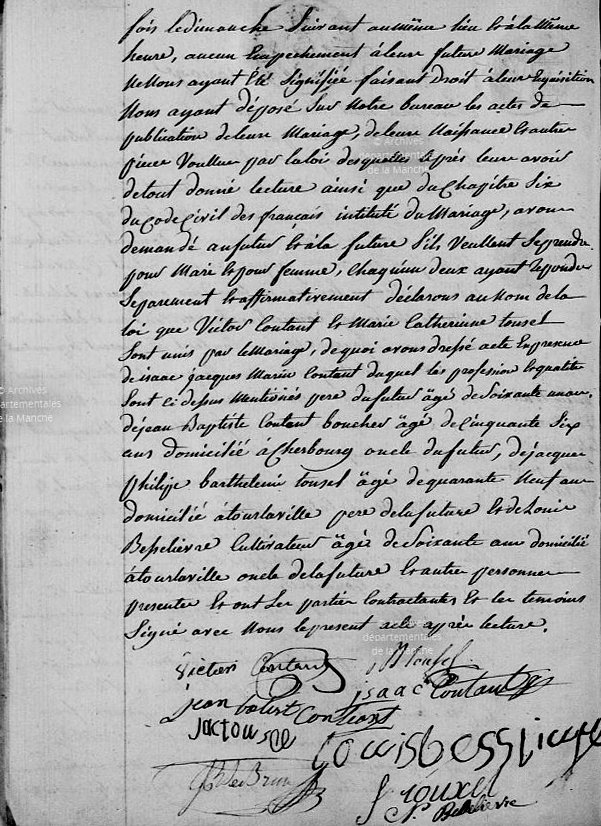 fois le dimanche suivant au même lieu & à la même
heure, aucun Empechement à leur future Mariage
ne Nous ayant Eté Signifiée faisant Droit à leur Requisition
Nous ayant déposé Sur Notre bureau les actes de
publication de leur Mariage, de leur Naissance & autre
piece Voullue par la loi desquelles après leur avoir
de tout donné lecture ainsi que du Chapitre Six
du Code Civil des français intitulé du Mariage, avons
demandé au futur & à la future S'ils Veullent Se prendre
pour Mari & pour femme, Chaqu'un deux ayant répondu
Separément & affirmativement déclarons au Nom de la
loi que Victor Contant & Marie Catherinne tousel
Sont unis par le Mariage, de quoi avons dressé acte En presence
de isaac jacques Marin Contant duquel les profession & qualité
Sont Ci dessus Mentionés pere du futur âgé de Soixante un an.
de jean Baptiste Contant boucher âgé de Cinquante Six
ans domicilié à Cherbourg oncle du futur, de jacques
philipe barthelemi tousel âgé de quarante Neuf ans
domicilié à tourlaville pere de la future & de Louis
Besselievre Cultivateur âgé de Soixante ans domicilié
à tourlaville oncle de la future & autre personnes
presente & ont les partie Contractantes & les temoins
Signé avec Nous le present acte après lecture.
Victor Contant
isaac Contant
jean batist Contant
Louis bessli
Besselievre
© Archives
départementales
de la Manche
© Archives
départementales
de la Manche
© Archives
départementales
de la Manche